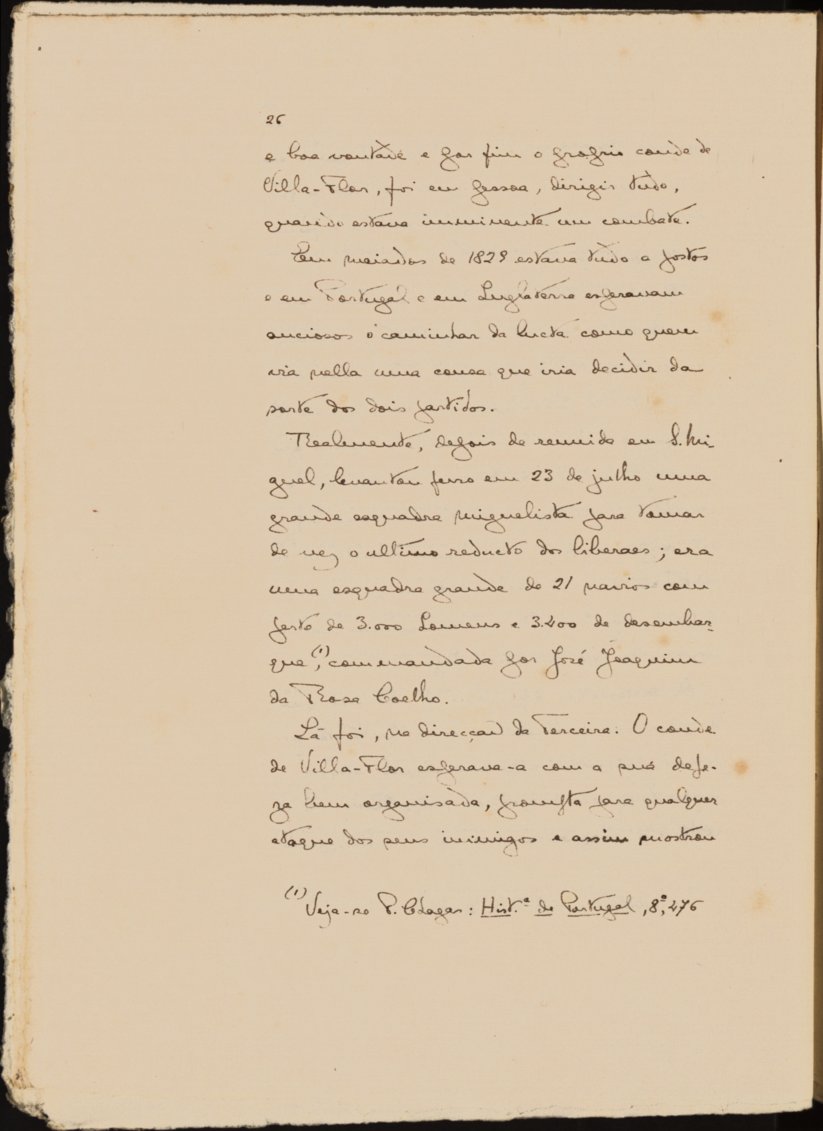 26
e boa vontade e por fim o proprio conde de
Villa-Flor, foi em pessoa, dirigir tudo,
quando estava imminente um combate.
Em meiados de 1829 estava tudo a postos
e em Portugal e em Inglaterra esperavam
anciosos o caminhar da lucta como quem
via nella uma cousa que iria decidir da
sorte dos dois partidos.
Realmente, depois de reunida em S. Mi-
guel, levantou ferro em 23 de julho uma
grande esquadra miguelista para tomar
de vez o ultimo reducto dos liberaes; era
uma esquadra grande de 21 navios com
perto de 3.000 homens e 3.400 de desembar-
que,(1) commandada por José Joaquim
da Rosa Coelho.
Lá foi, na direcção da Terceira. O conde
de Villa-Flor esperava-a com a sua defe-
za bem organisada, prompta para qualquer
ataque dos seus inimigos e assim mostrou
(1) Veja-se P. Chagas: Hist.ª de Portugal, 8.º, 276